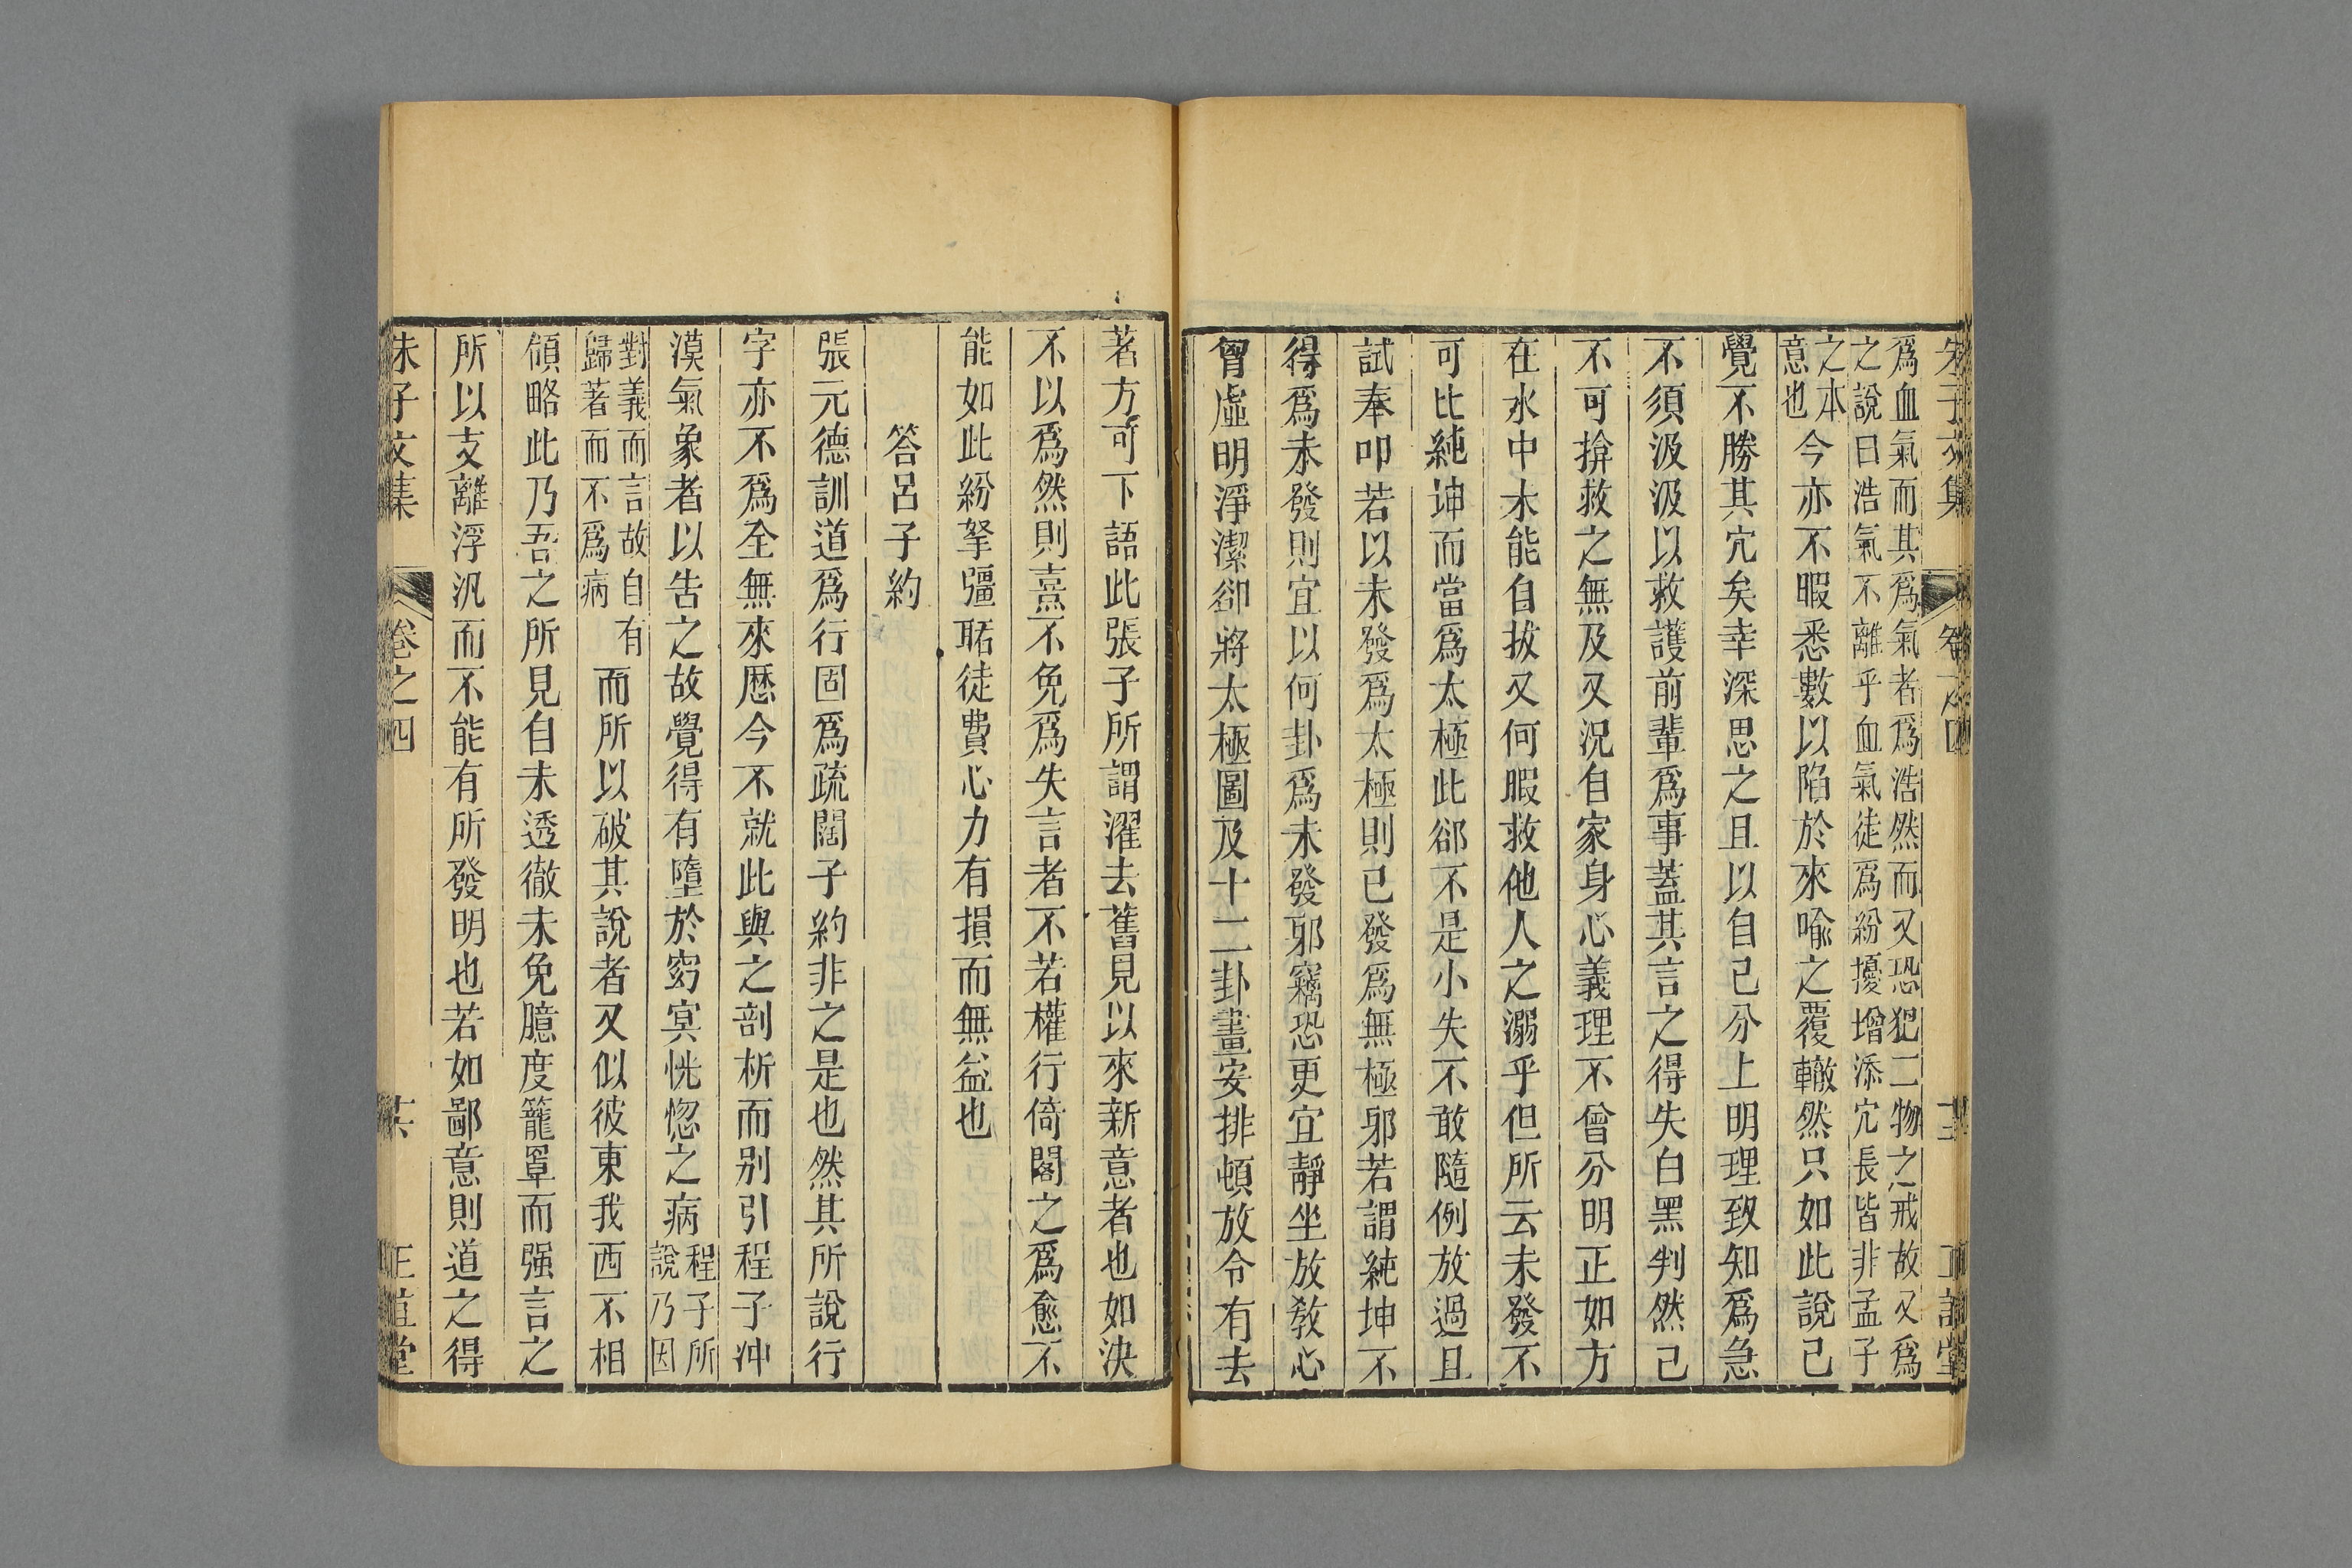 朱子文集 卷之四 正誼堂
爲血氣而其爲氣者爲浩然而又恐犯二物之戒故又爲
之說曰浩氣不離乎血氣徒爲紛擾增添冗長皆非孟子
之本
意也
今亦不暇悉數以陷於來喻之覆轍然只如此說已
覺不勝其冗矣幸深思之且以自己分上明理致知爲急
不須汲汲以救護前輩爲事蓋其言之得失白黑判然已
不可揜救之無及又況自家身心義理不曾分明正如方
在水中未能自拔又何暇救他人之溺乎但所云未發不
可比純坤而當爲太極此卻不是小失不敢隨例放過且
試奉叩若以未發爲太極則已發爲無極邪若謂純坤不
得爲未發則宜以何卦爲未發邪竊恐更宜靜坐放敎心
胷虛明淨潔卻將太極圖及十二卦畫安排頓放令有去
著方可下語此張子所謂濯去舊見以來新意者也如決
不以爲然則熹不免爲失言者不若權行倚閣之爲愈不
能如此紛拏彊聒徒費心力有損而無益也
答呂子約
張元德訓道爲行固爲疏闊子約非之是也然其所說行
字亦不爲全無來歷今不就此與之剖析而别引程子冲
漠氣象者以告之故覺得有墮於窈冥恍惚之病
程子所
說乃因
對義而言故自有
歸著而不爲病
而所以破其說者又似彼東我西不相
領略此乃吾之所見自未透徹未免臆度籠罩而强言之
所以支離浮汎而不能有所發明也若如鄙意則道之得
朱子文集 卷之四 正誼堂